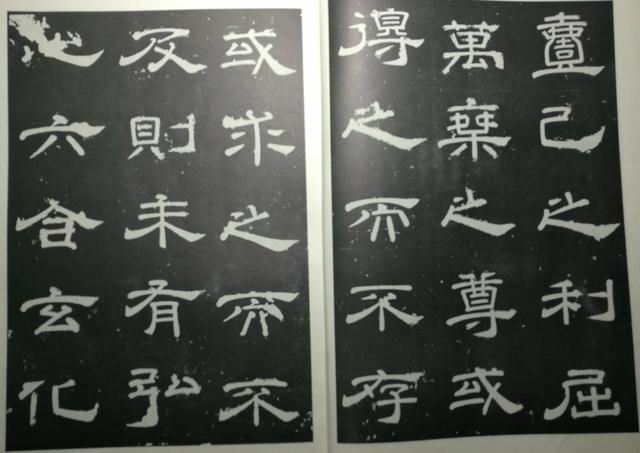 己之利屈
萬乘之尊或
得之而不存
或求之而不
及則未有弘
六合玄化